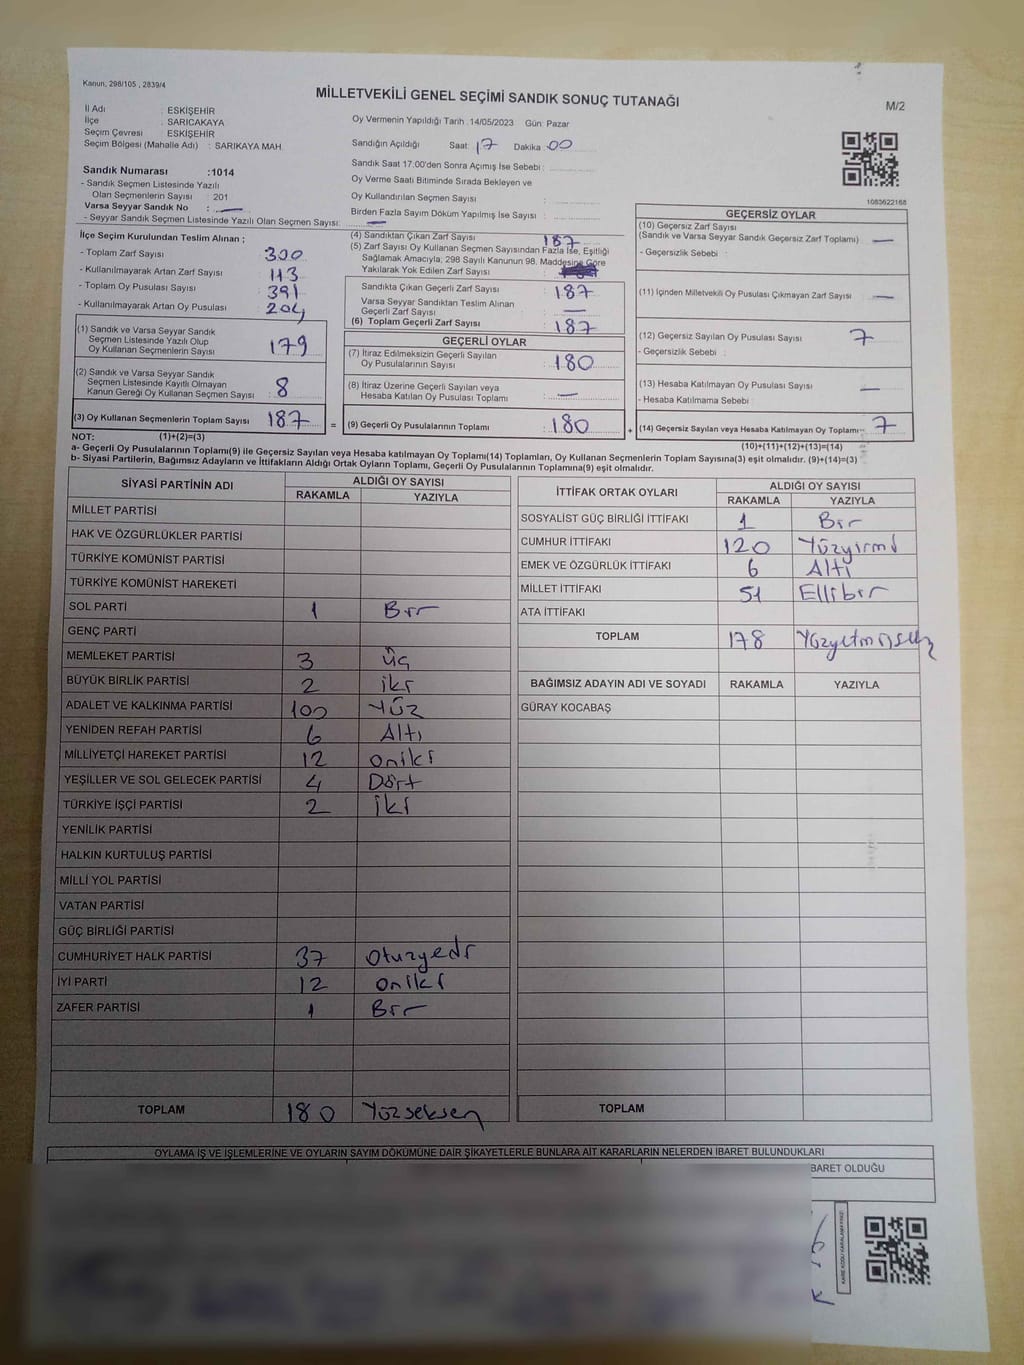 Kanun; 298/105 , 2839/4
MİLLETVEKİLİ GENEL SEÇİMİ SANDIK SONUÇ TUTANAĞI
M/2
İl Adı : ESKİŞEHİR
İlçe : SARICAKAYA
Seçim Çevresi : ESKİŞEHİR
Seçim Bölgesi (Mahalle Adı) : SARIKAYA MAH.
Oy Vermenin Yapıldığı Tarih :14/05/2023 Gün: Pazar
Sandığın Açıldığı Saat: 17 Dakika :00
Sandık Saat 17.00'den Sonra Açımış İse Sebebi :
Oy Verme Saati Bitiminde Sırada Bekleyen ve
Oy Kullandırılan Seçmen Sayısı :
Birden Fazla Sayım Döküm Yapılmış İse Sayısı :
1083622168
Sandık Numarası :1014
- Sandık Seçmen Listesinde Yazılı
Olan Seçmenlerin Sayısı : 201
Varsa Seyyar Sandık No : —
- Seyyar Sandık Seçmen Listesinde Yazılı Olan Seçmen Sayısı: —
İlçe Seçim Kurulundan Teslim Alınan ;
- Toplam Zarf Sayısı : 300
- Kullanılmayarak Artan Zarf Sayısı : 113
- Toplam Oy Pusulası Sayısı : 391
- Kullanılmayarak Artan Oy Pusulası : 204
(1) Sandık ve Varsa Seyyar Sandık
Seçmen Listesinde Yazılı Olup
Oy Kullanan Seçmenlerin Sayısı : 179
(2) Sandık ve Varsa Seyyar Sandık
Seçmen Listesinde Kayıtlı Olmayan
Kanun Gereği Oy Kullanan Seçmen Sayısı : 8
(3) Oy Kullanan Seçmenlerin Toplam Sayısı : 187
(4) Sandıktan Çıkan Zarf Sayısı : 187
(5) Zarf Sayısı Oy Kullanan Seçmen Sayısından Fazla İse, Eşitliği
Sağlamak Amacıyla; 298 Sayılı Kanunun 98. Maddesine Göre
Yakılarak Yok Edilen Zarf Sayısı :
Sandıkta Çıkan Geçerli Zarf Sayısı : 187
Varsa Seyyar Sandıktan Teslim Alınan
Geçerli Zarf Sayısı : —
(6) Toplam Geçerli Zarf Sayısı : 187
GEÇERLİ OYLAR
(7) İtiraz Edilmeksizin Geçerli Sayılan
Oy Pusulalarının Sayısı : 180
(8) İtiraz Üzerine Geçerli Sayılan veya
Hesaba Katılan Oy Pusulası Toplamı : —
= (9) Geçerli Oy Pusulalarının Toplamı : 180
GEÇERSİZ OYLAR
(10) Geçersiz Zarf Sayısı
(Sandık ve Varsa Seyyar Sandık Geçersiz Zarf Toplamı) : —
- Geçersizlik Sebebi :
(11) İçinden Milletvekili Oy Pusulası Çıkmayan Zarf Sayısı : —
(12) Geçersiz Sayılan Oy Pusulası Sayısı : 7
- Geçersizlik Sebebi :
(13) Hesaba Katılmayan Oy Pusulası Sayısı : —
- Hesaba Katılmama Sebebi :
+ (14) Geçersiz Sayılan veya Hesaba Katılmayan Oy Toplamı : 7
NOT: (1)+(2)=(3)
(10)+(11)+(12)+(13)=(14)
a- Geçerli Oy Pusulalarının Toplamı(9) ile Geçersiz Sayılan veya Hesaba katılmayan Oy Toplamı(14) Toplamları, Oy Kullanan Seçmenlerin Toplam Sayısına(3) eşit olmalıdır. (9)+(14)=(3)
b- Siyasi Partilerin, Bağımsız Adayların ve İttifakların Aldığı Ortak Oyların Toplamı, Geçerli Oy Pusulalarının Toplamına(9) eşit olmalıdır.
SİYASİ PARTİNİN ADI ALDIĞI OY SAYISI
RAKAMLA YAZIYLA
MİLLET PARTİSİ
HAK VE ÖZGÜRLÜKLER PARTİSİ
TÜRKİYE KOMÜNİST PARTİSİ
TÜRKİYE KOMÜNİST HAREKETİ
SOL PARTİ 1 Bir
GENÇ PARTİ
MEMLEKET PARTİSİ 3 üç
BÜYÜK BİRLİK PARTİSİ 2 iki
ADALET VE KALKINMA PARTİSİ 100 Yüz
YENİDEN REFAH PARTİSİ 6 Altı
MİLLİYETÇİ HAREKET PARTİSİ 12 oniki
YEŞİLLER VE SOL GELECEK PARTİSİ 4 Dört
TÜRKİYE İŞÇİ PARTİSİ 2 iki
YENİLİK PARTİSİ
HALKIN KURTULUŞ PARTİSİ
MİLLİ YOL PARTİSİ
VATAN PARTİSİ
GÜÇ BİRLİĞİ PARTİSİ
CUMHURİYET HALK PARTİSİ 37 Otuzyedi
İYİ PARTİ 12 oniki
ZAFER PARTİSİ 1 Bir
TOPLAM 180 Yüzseksen
İTTİFAK ORTAK OYLARI ALDIĞI OY SAYISI
RAKAMLA YAZIYLA
SOSYALİST GÜÇ BİRLİĞİ İTTİFAKI 1 Bir
CUMHUR İTTİFAKI 120 Yüzyirmi
EMEK VE ÖZGÜRLÜK İTTİFAKI 6 Altı
MİLLET İTTİFAKI 51 Ellibir
ATA İTTİFAKI
TOPLAM 178 Yüzyetmişsekiz
BAĞIMSIZ ADAYIN ADI VE SOYADI RAKAMLA YAZIYLA
GÜRAY KOCABAŞ
TOPLAM
OYLAMA İŞ VE İŞLEMLERİNE VE OYLARIN SAYIM DÖKÜMÜNE DAİR ŞİKAYETLERLE BUNLARA AİT KARARLARIN NELERDEN İBARET BULUNDUKLARI
BARET OLDUĞU